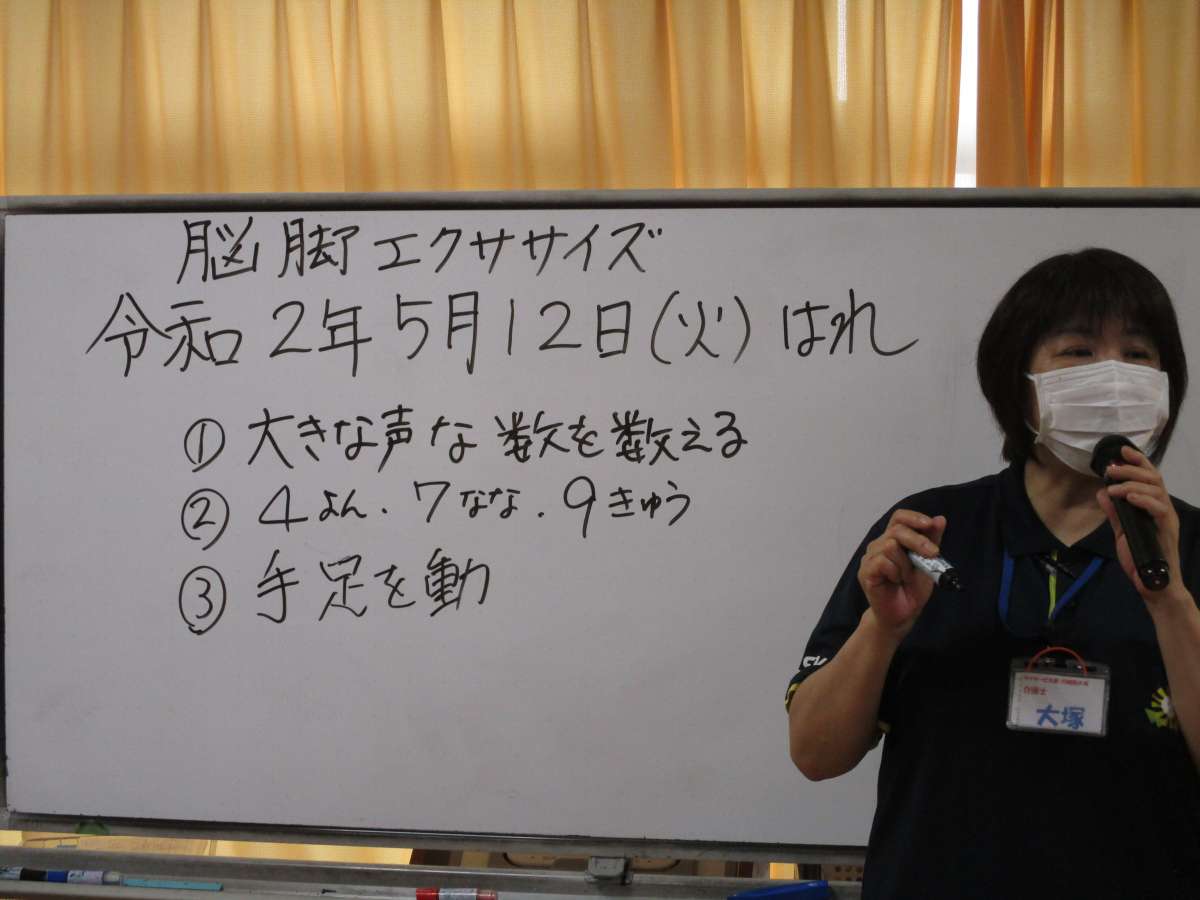 脳脚エクササイズ
令和2年5月12日(火)はれ
①大きな声な数を数える
②4よん.7なな.9きゅう
③手足を動
介護士
大塚